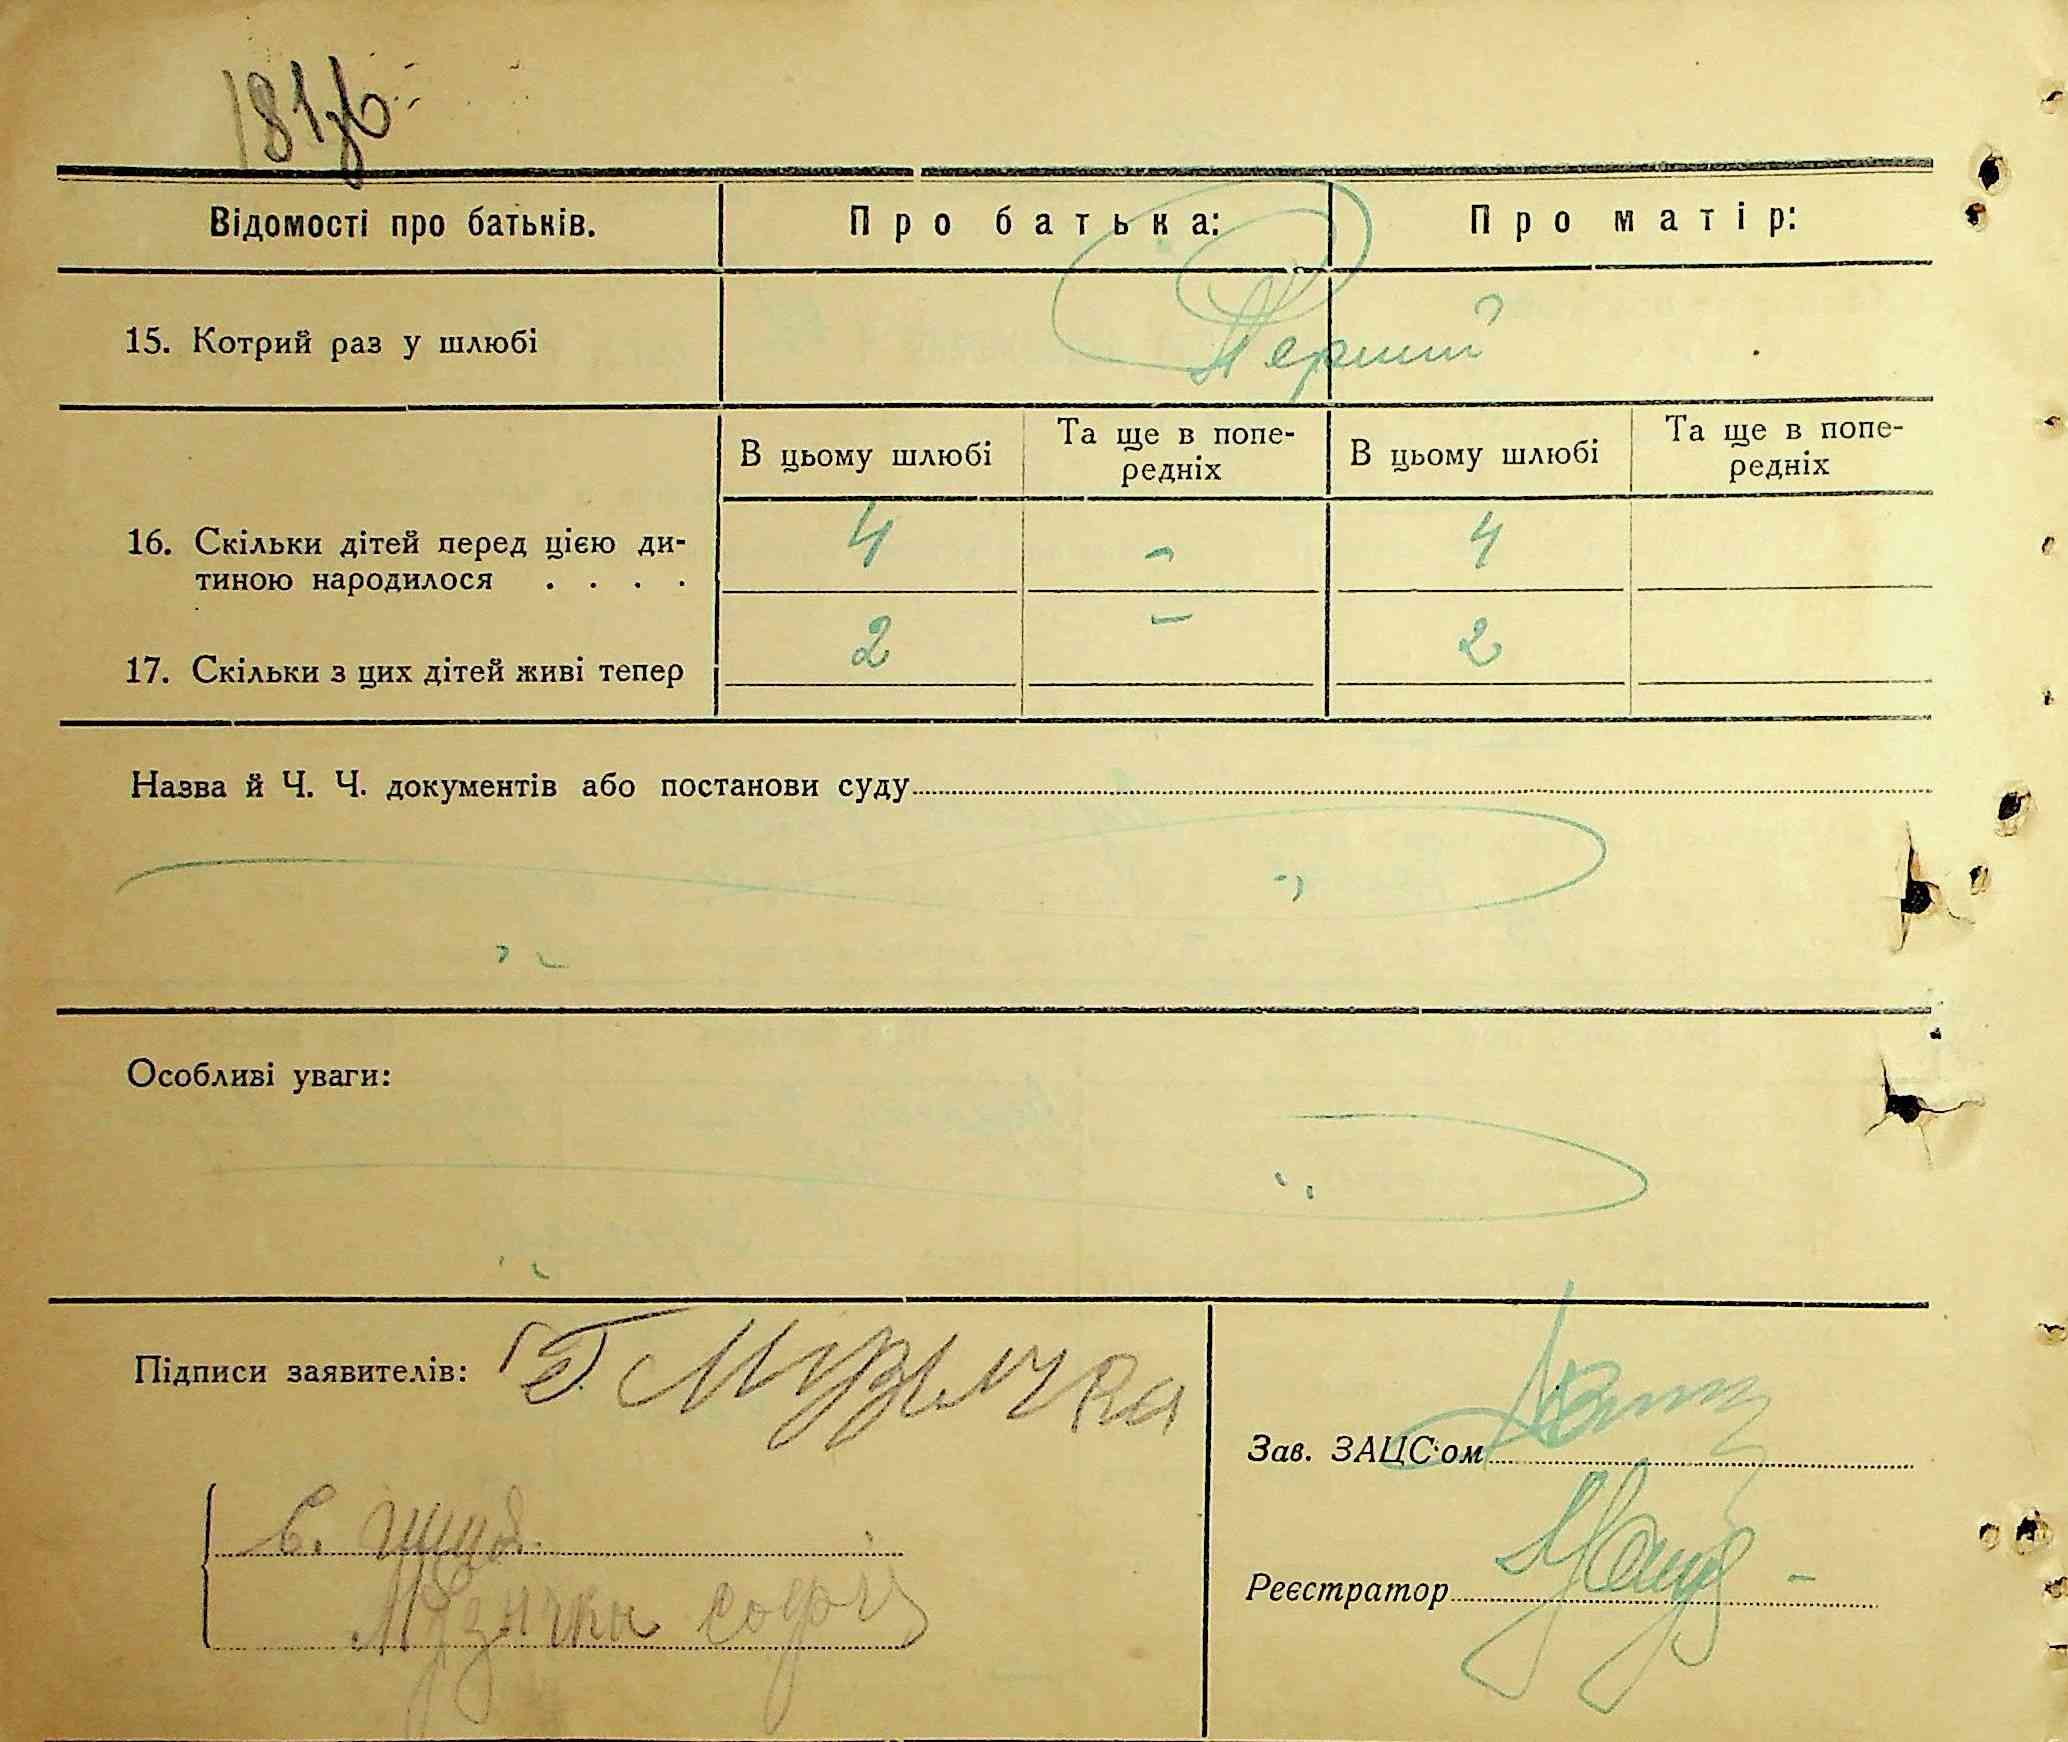 181зв
Відомості про батьків. Про батька: Про матір:
15. Котрий раз у шлюбі Перший
В цьому шлюбі Та ще в попе-редніх В цьому шлюбі Та ще в попе-редніх
16. Скільки дітей перед цією ди- 4 - 4
тиною народилося . . . .
17. Скільки з цих дітей живі тепер 2 - 2
Назва й Ч. Ч. документів або постанови суду
Особливі уваги:
Підписи заявителів: Музичка
Музичка
Зав. ЗАЦС'ом
Реєстратор